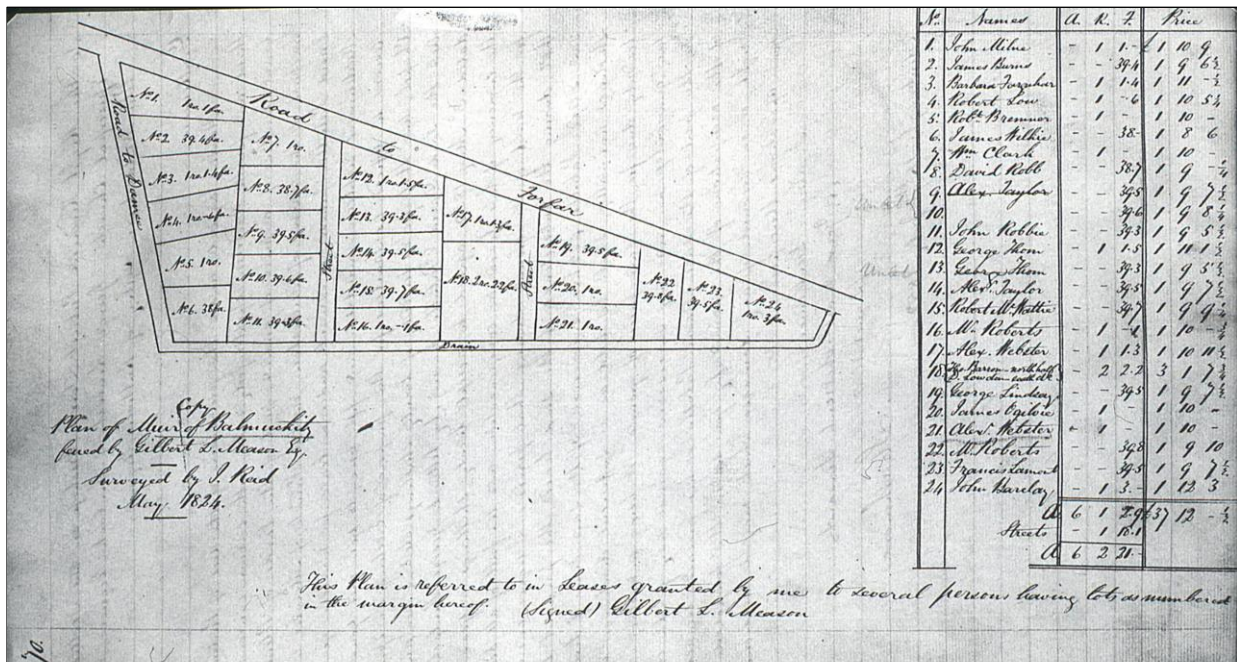 Road to Forfar
Road to Damee
Street
Street
Drain
No. 1. 1 ro. 1 fa.
No. 2 39.4 fa.
No. 3. 1 ro. 1.4 fa.
No. 4. 1 ro. -.6 fa.
No. 5. 1 ro.
No. 6. 38 fa.
No. 7. 1 ro.
No. 8. 38.7 fa.
No. 9. 39.5 fa.
No. 10. 39.6 fa.
No. 11. 39.3 fa.
No. 12. 1 ro. 1.5 fa.
No. 13. 39.3 fa.
No. 14. 39.5 fa.
No. 15. 39.7 fa.
No. 16. 1 ro. -.1 fa.
No. 17. 1 ro. 1.3 fa.
No. 18. 2 ro. 2.2 fa.
No. 19. 39.5 fa.
No. 20. 1 ro.
No. 21. 1 ro.
No. 22 39.8 fa.
No. 23. 39.5 fa.
No. 24 1 ro. 3 fa.
Copy
Plan of Muir of Balmuckity
feued by Gilbert L. Meason Esq.
Surveyed by J. Reid
May 1824.
No. Names A. R. F. Price
1. John Milne - 1 1.- £1 10 9
2. James Burns - - 39.4 1 9 6½
3. Barbara Farquhar - 1 1.4 1 11 -½
4. Robert Low - 1 -.6 1 10 5¼
5. Robt. Bremner - 1 - 1 10 -
6. James Wilkie - - 38- 1 8 6
7. Wm. Clark - 1 - 1 10 -
8. David Robb - - 38.7 1 9 -¼
9. Alex. Taylor - - 39.5 1 9 7½
10. - - 39.6 1 9 8¼
11. John Robbie - - 39.3 1 9 5½
12. George Thom - 1 1.5 1 11 1½
13. George Thom - - 39.3 1 9 5½
14. Alexr. Taylor - - 39.5 1 9 7½
15. Robert - - 39.7 1 9 9¼
16. Roberts - 1 -.1 1 10 -¾
17. Alex. Webster - 1 1.3 1 10 11½
18. north half - 2 2.2 3 1 7¾
19. George Lindsay - - 39.5 1 9 7½
20. James Ogilvie - 1 - 1 10 -
21. Alexr. Webster - 1 - 1 10 -
22. Roberts - - 39.8 1 9 10
23. Francis Lamont - - 39.5 1 9 7½
24. John Barclay - 1 3.- 1 12 3
A 6 1 2.9 £37 12 -½
Streets - 1 18.1
A 6 2 21.-
This Plan is referred to in Leases granted by me to several persons having lots as numbered
in the margin hereof. (Signed) Gilbert L. Meason
70.